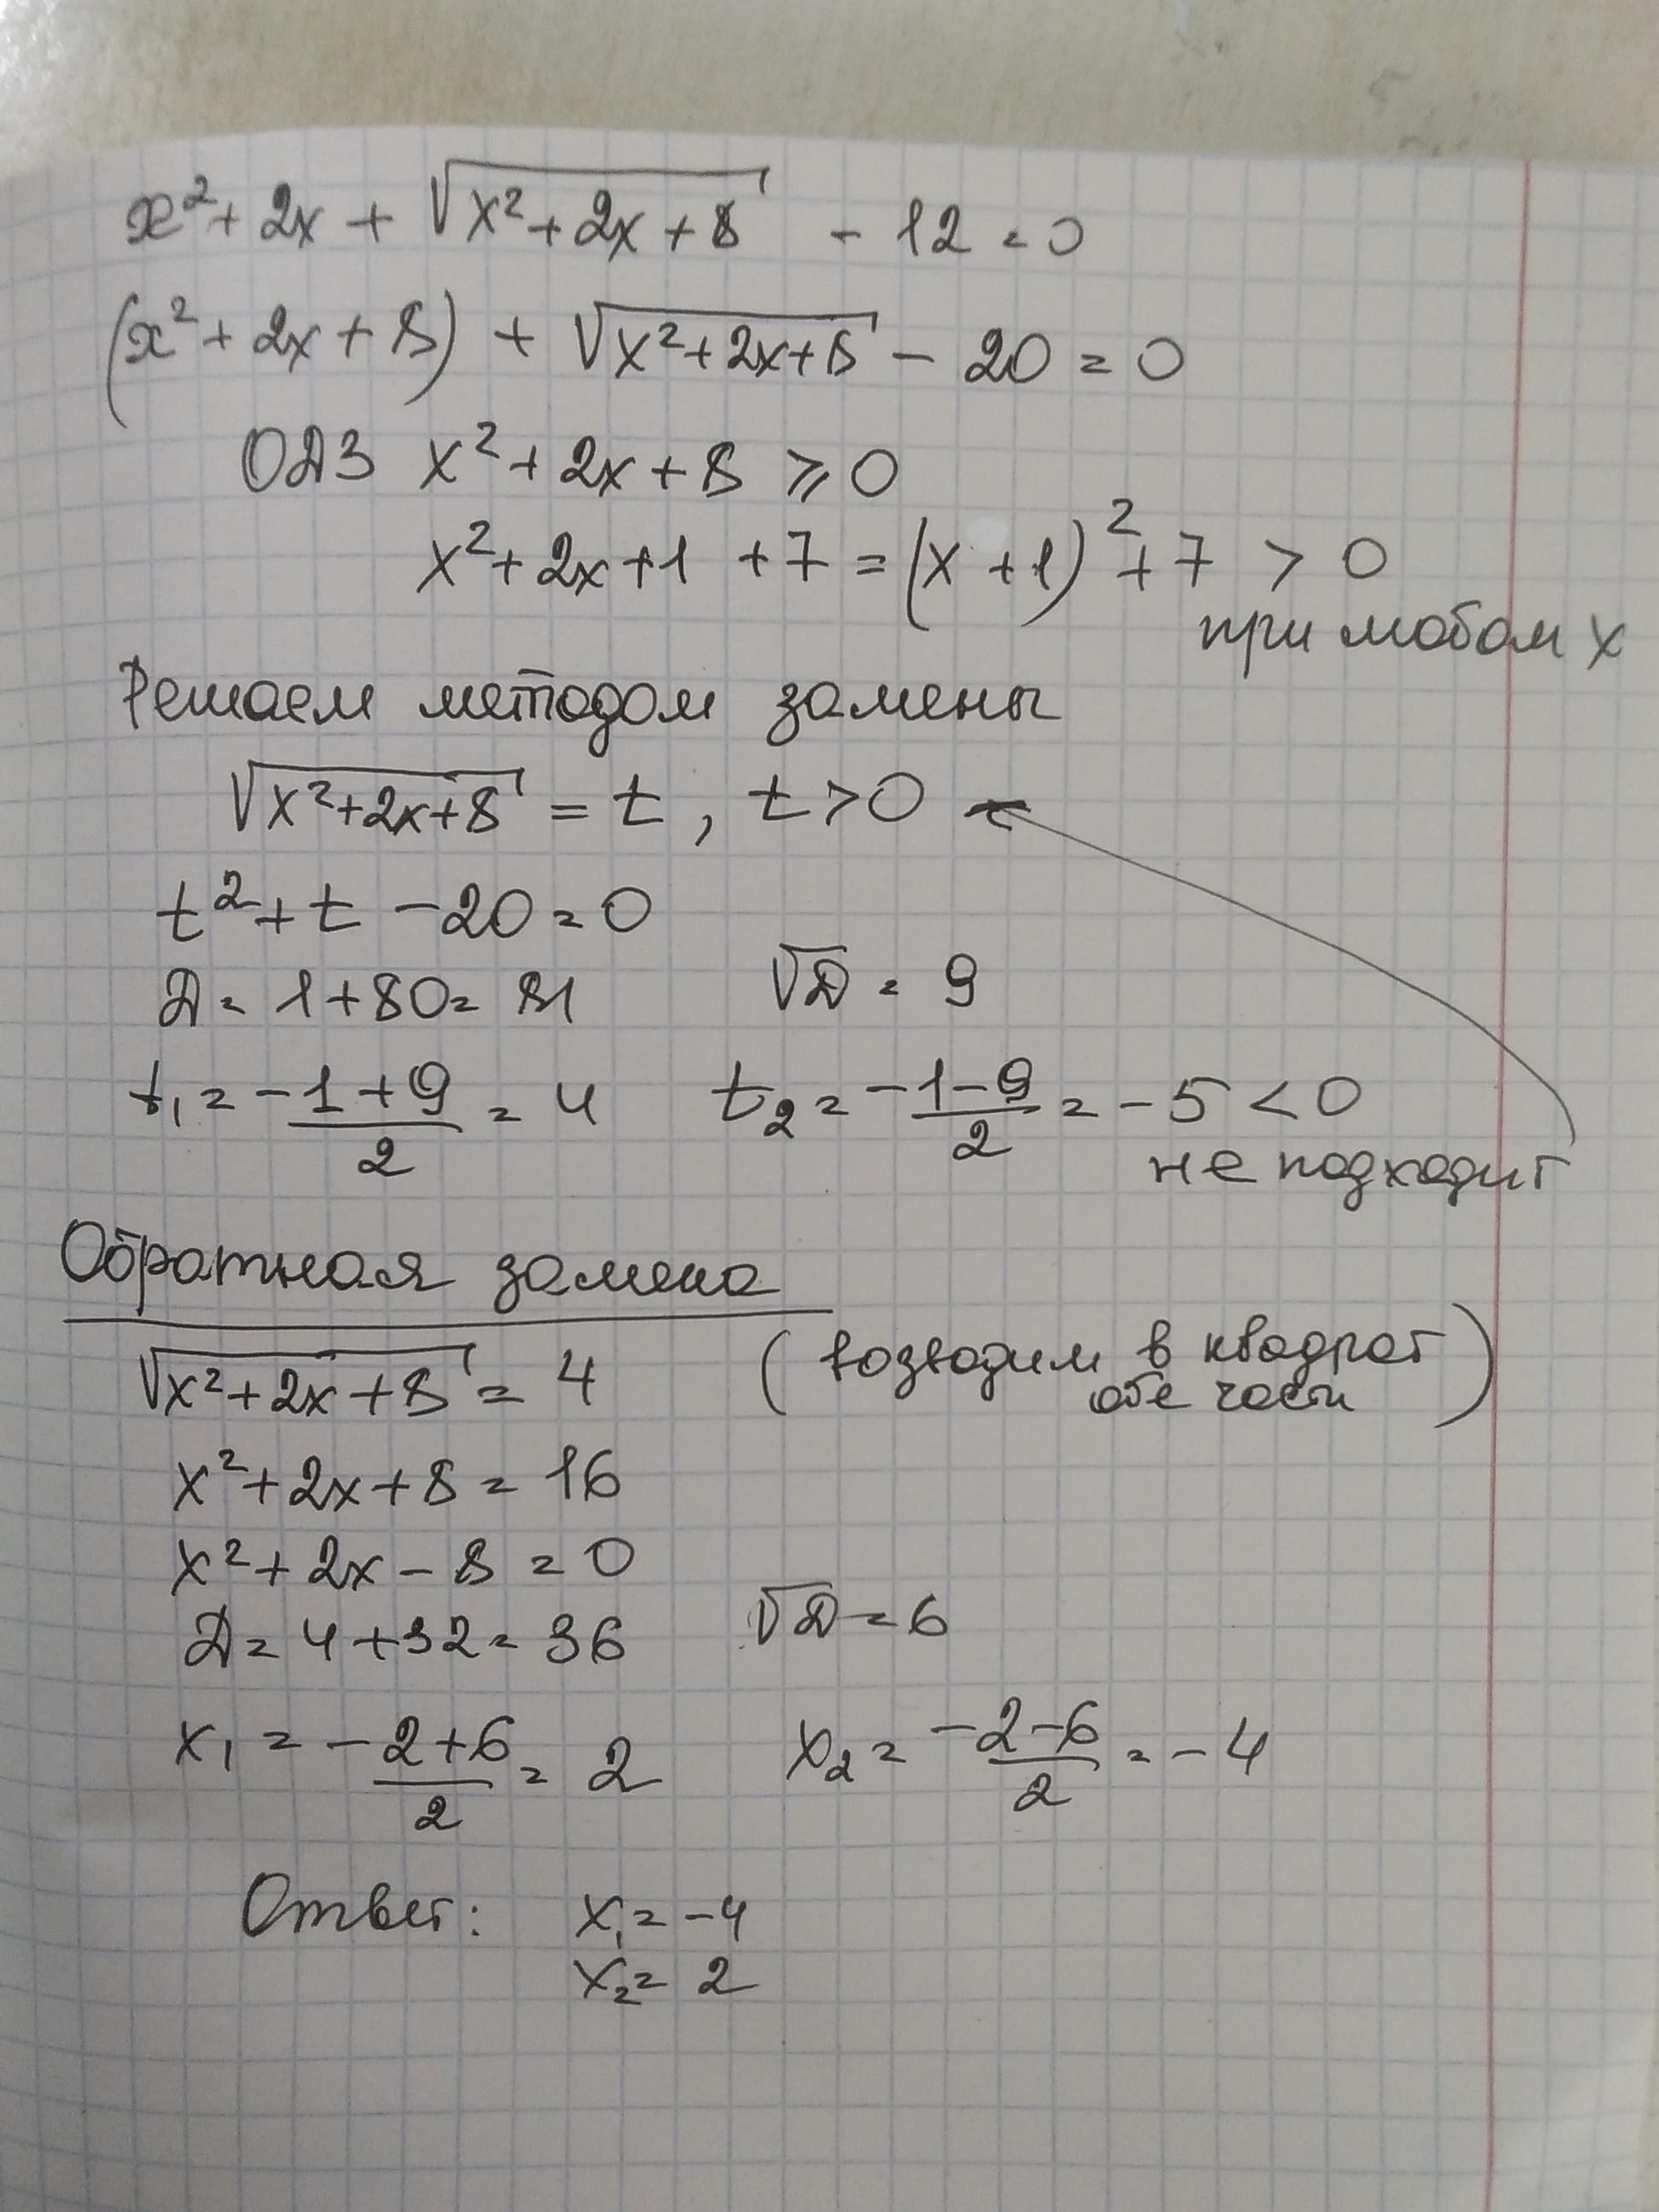 x² + 2x + √(x² + 2x + 8) - 12 = 0
(x² + 2x + 8) + √(x² + 2x + 8) - 20 = 0
ОДЗ x² + 2x + 8 ⩾ 0
x² + 2x + 1 + 7 = (x + 1)² + 7 > 0
при любом x
Решаем методом замены
√(x² + 2x + 8) = t, t > 0
t² + t - 20 = 0
D = 1 + 80 = 81 √D = 9
t₁ = (-1 + 9)/2 = 4 t₂ = (-1 - 9)/2 = -5 < 0
не подходит
Обратная замена
√(x² + 2x + 8) = 4 (возводим в квадрат
обе части)
x² + 2x + 8 = 16
x² + 2x - 8 = 0
D = 4 + 32 = 36 √D = 6
x₁ = (-2 + 6)/2 = 2 x₂ = (-2 - 6)/2 = -4
Ответ: x₁ = -4
x₂ = 2